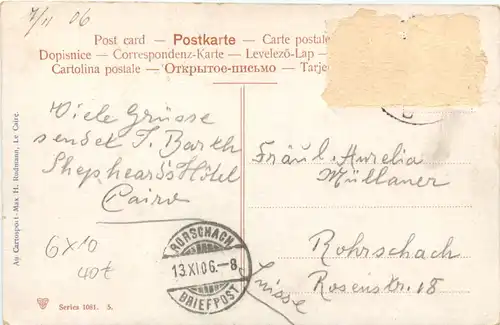 7/11 06
Post card — Postkarte — Carte postale
Dopisnice — Correspondenz-Karte — Levelező-Lap —
Cartolina postale — Открытое-письмо — Tarje
Viele Grüsse
sendet J. Barth
Shepheard's Hôtel
Cairo
6x10
Fräul. Aurelia
Müllaner
Rohrschach
Rosenstr. 18
Suisse
RORSCHACH
13.XI.06.-8
BRIEFPOST
Au Cartosport-Max H. Rudmann, Le Caire.
Series 1081. 5.